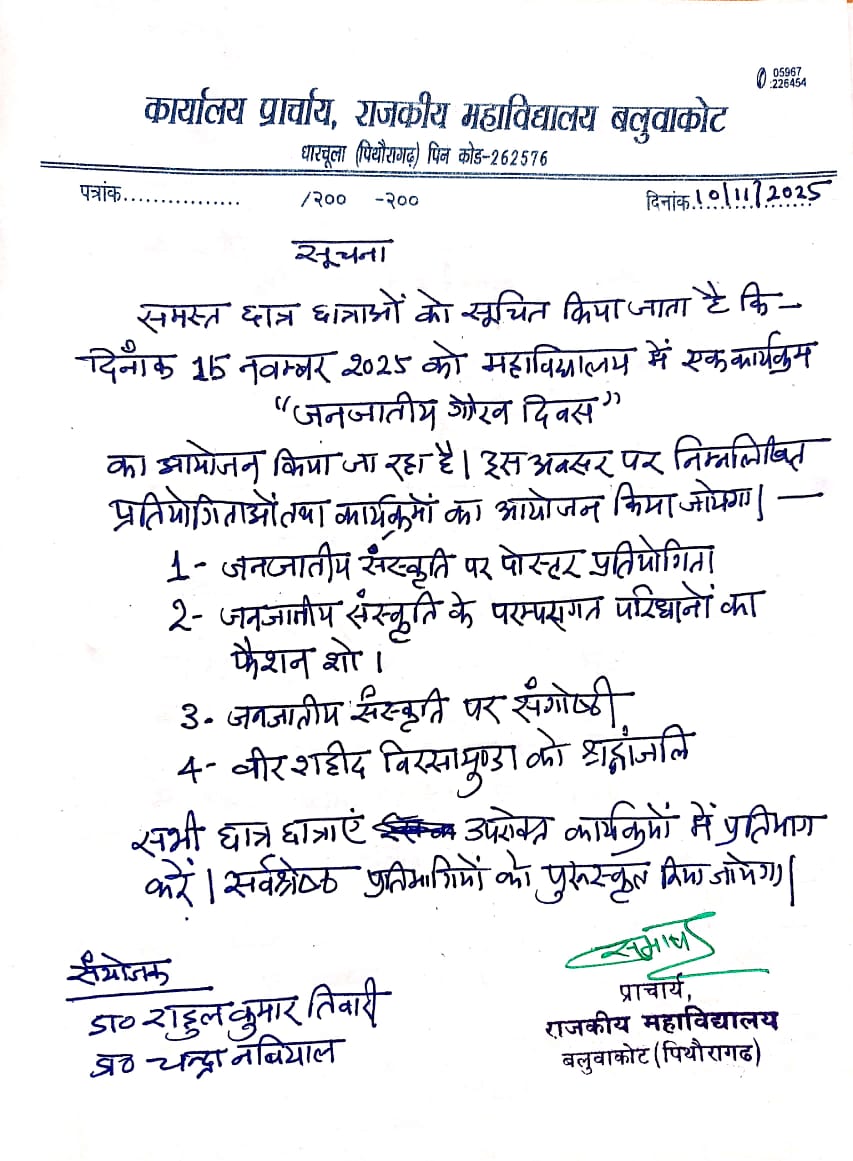 05967
:226454
कार्यालय प्राचार्य, राजकीय महाविद्यालय बलुवाकोट
धारचूला (पिथौरागढ़) पिन कोड-262576
पत्रांक................ /२०० -२००
दिनांक.10/11/2025
सूचना
समस्त छात्र छात्राओं को सूचित किया जाता है कि -
दिनाँक 15 नवम्बर 2025 को महाविद्यालय में एक कार्यक्रम
"जनजातीय गौरव दिवस"
का आयोजन किया जा रहा है। इस अवसर पर निम्नलिखित
प्रतियोगिताओं तथा कार्यक्रमों का आयोजन किया जायेगा। -
1- जनजातीय संस्कृति पर पोस्टर प्रतियोगिता
2- जनजातीय संस्कृति के परम्परागत परिधानों का
फैशन शो ।
3. जनजातीय संस्कृति पर संगोष्ठी
4- वीर शहीद बिरसा मुण्डा को श्रद्धांजलि
सभी छात्र छात्राएं उपरोक्त कार्यक्रमों में प्रतिभाग
करें । सर्वश्रेष्ठ प्रतिभागियों को पुरुस्कृत किया जायेगा।
संयोजक
डा० राहुल कुमार तिवारी
डा० चन्द्रा नबियाल
प्राचार्य,
राजकीय महाविद्यालय
बलुवाकोट (पिथौरागढ)